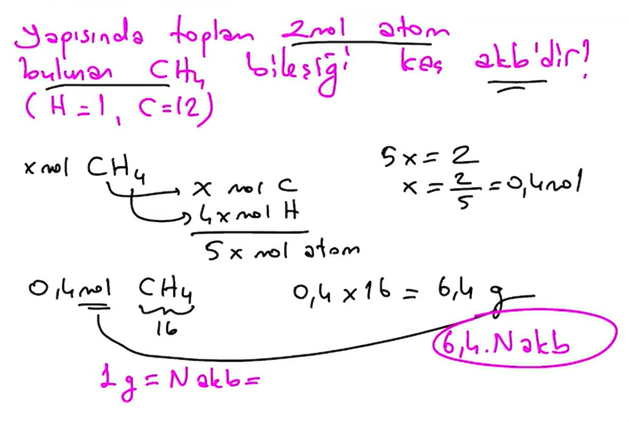 yapısında toplan 2mol atom
bulunan CH₄ bileşiği kaç akb'dir?
(H=1, C=12)
x mol CH₄
x mol C
4x mol H
5x mol atom
5x = 2
x = 2/5 = 0,4mol
0,4mol CH₄
16
0,4 x 16 = 6,4 g
6,4.Nakb
1g = Nakb=